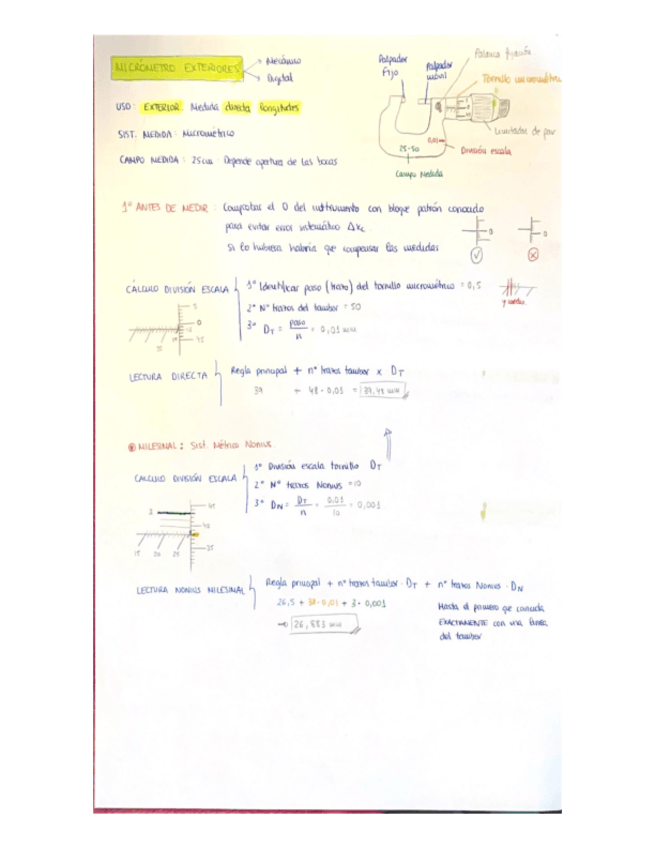 MICRÓMETRO EXTERIORES → Mecánico
→ Digital
Palpador fijo
Palpador móvil
Palanca fijación
Tornillo micrométrico
Limitador de par
División escala
0,01
25-50
Campo Medida
USO: EXTERIOR Medida directa longitudes
SIST. MEDIDA: Micrométrico
CAMPO MEDIDA: 25mm: Depende apertura de las bocas
1º ANTES DE MEDIR: Comprobar el 0 del instrumento con bloque patrón conocido
para evitar error sistemático Δxc.
Si lo hubiera habría que compensar las medidas
0
0
CÁLCULO DIVISIÓN ESCALA
1º Identificar paso (trazo) del tornillo micrométrico = 0,5
2º Nº trazos del tambor = 50
3º DT = paso/n = 0,01 mm
5
0
45
35
LECTURA DIRECTA
Regla principal + nº trazos tambor x DT
39 + 48 · 0,01 = 39,48 mm
MILESIMAL: Sist. Métrico Nonius.
CALCULO DIVISIÓN ESCALA
1º División escala tornillo DT
2º Nº trazos Nonius = 10
3º DN = DT/n = 0.01/10 = 0,001
3
45
40
35
15 20 25
LECTURA NONIUS MILESIMAL
Regla principal + nº trazos tambor · DT + nº trazos Nonius · DN
26,5 + 38 · 0,01 + 3 · 0,001
→ 26,883 mm
Hasta el primero que coincida
EXACTAMENTE con una línea
del tambor